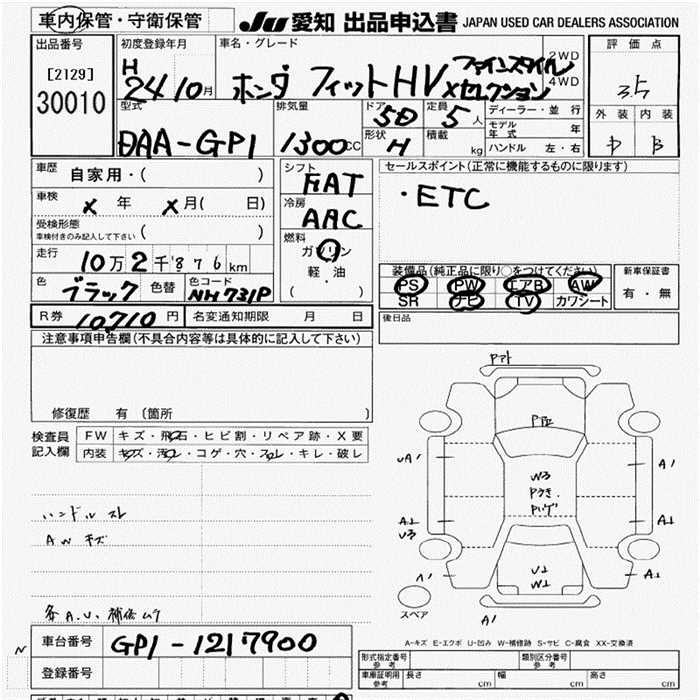 車内保管・守衛保管 JU 愛知 出品申込書 JAPAN USED CAR DEALERS ASSOCIATION
出品番号 初度登録年月 車名・グレード 評価点
[2129]
30010
H 24 10月 ホンダ フィットHV ファインスタイル Xセレクション 2WD 4WD
型式 排気量 ドア 定員 ディーラー・並行 外装 内装
DAA-GP1 1300CC 5D 5人 モデル年式 年
形状 H 積載 kg ハンドル 左・右 B
車歴 自家用・( ) シフト FAT セールスポイント(正常に機能するものに限ります)
車検 X 年 X 月( 日) 冷房 AAC ・ETC
受検形態
車検付きのみ記入して下さい ( ) 燃料 ガソリン
走行 10万2千876km 軽・油 ( )
装備品(純正品に限り○をつけてください) 新車保証書
PS PW エアB AW 有・無
SR ナビ TV カワシート
色 ブラック 色替 色コード NH731P
R券 10710円 名変通知期限 月 日 後日品
注意事項申告欄(不具合内容等は具体的に記入して下さい)
修復歴 有 〔箇所 〕
検査員記入欄 FW キズ・飛石・ヒビ割・リペア跡・X要
内装 キズ・汚レ・コゲ・穴・スレ・キレ・破レ
ハンドル スレ
AW キズ
各A.U.補修ムラ
A1
A1
A1
W3
スペア
A1
A-キズ E-エクボ U-凹み W-補修跡 S-サビ C-腐食 XX-交換済
車台番号 GP1-1217900
登録番号
型式指定番号 参考 類別区分番号 参考
車庫証明用 参考 長さ cm 幅 cm 高さ cm